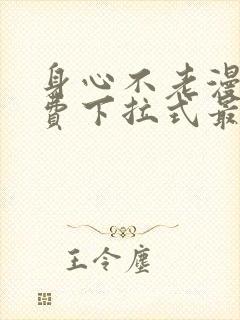 身心不老漫
费下拉式最
王令尘